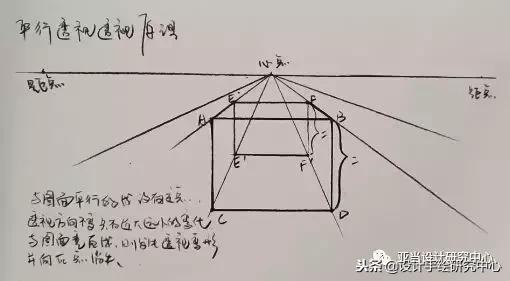 平行透视透视原理
心点
距点
距点
E
F
A
B
二
二
E'
F'
C
D
与图面平行的线没有灭点…
透视方向不变,只有近大远小的变化
与图面垂直线,则发生透视变形
并向心点消失。
亚当设计研究中心
头条 @设计手绘研究中心